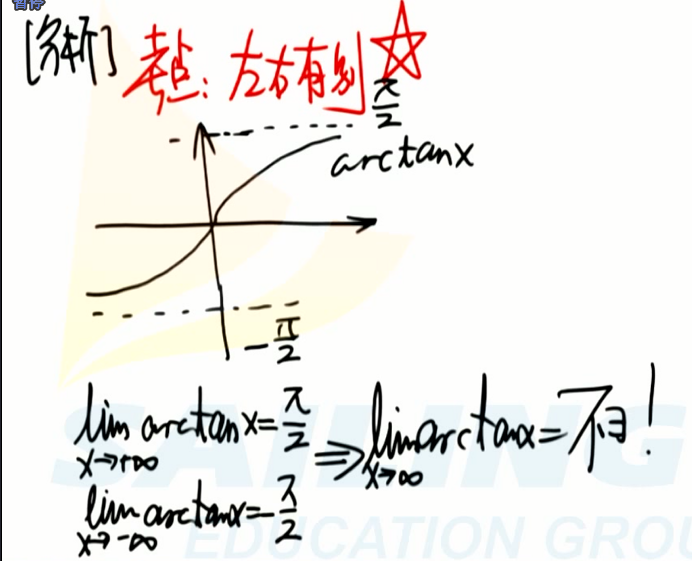 暂停
[分析] 考点：左右有别☆
π/2
arctanx
-π/2
lim x→+∞ arctanx=π/2
lim x→-∞ arctanx=-π/2
⇒ lim x→∞ arctanx=不∃!
SAILING
EDUCATION GROU